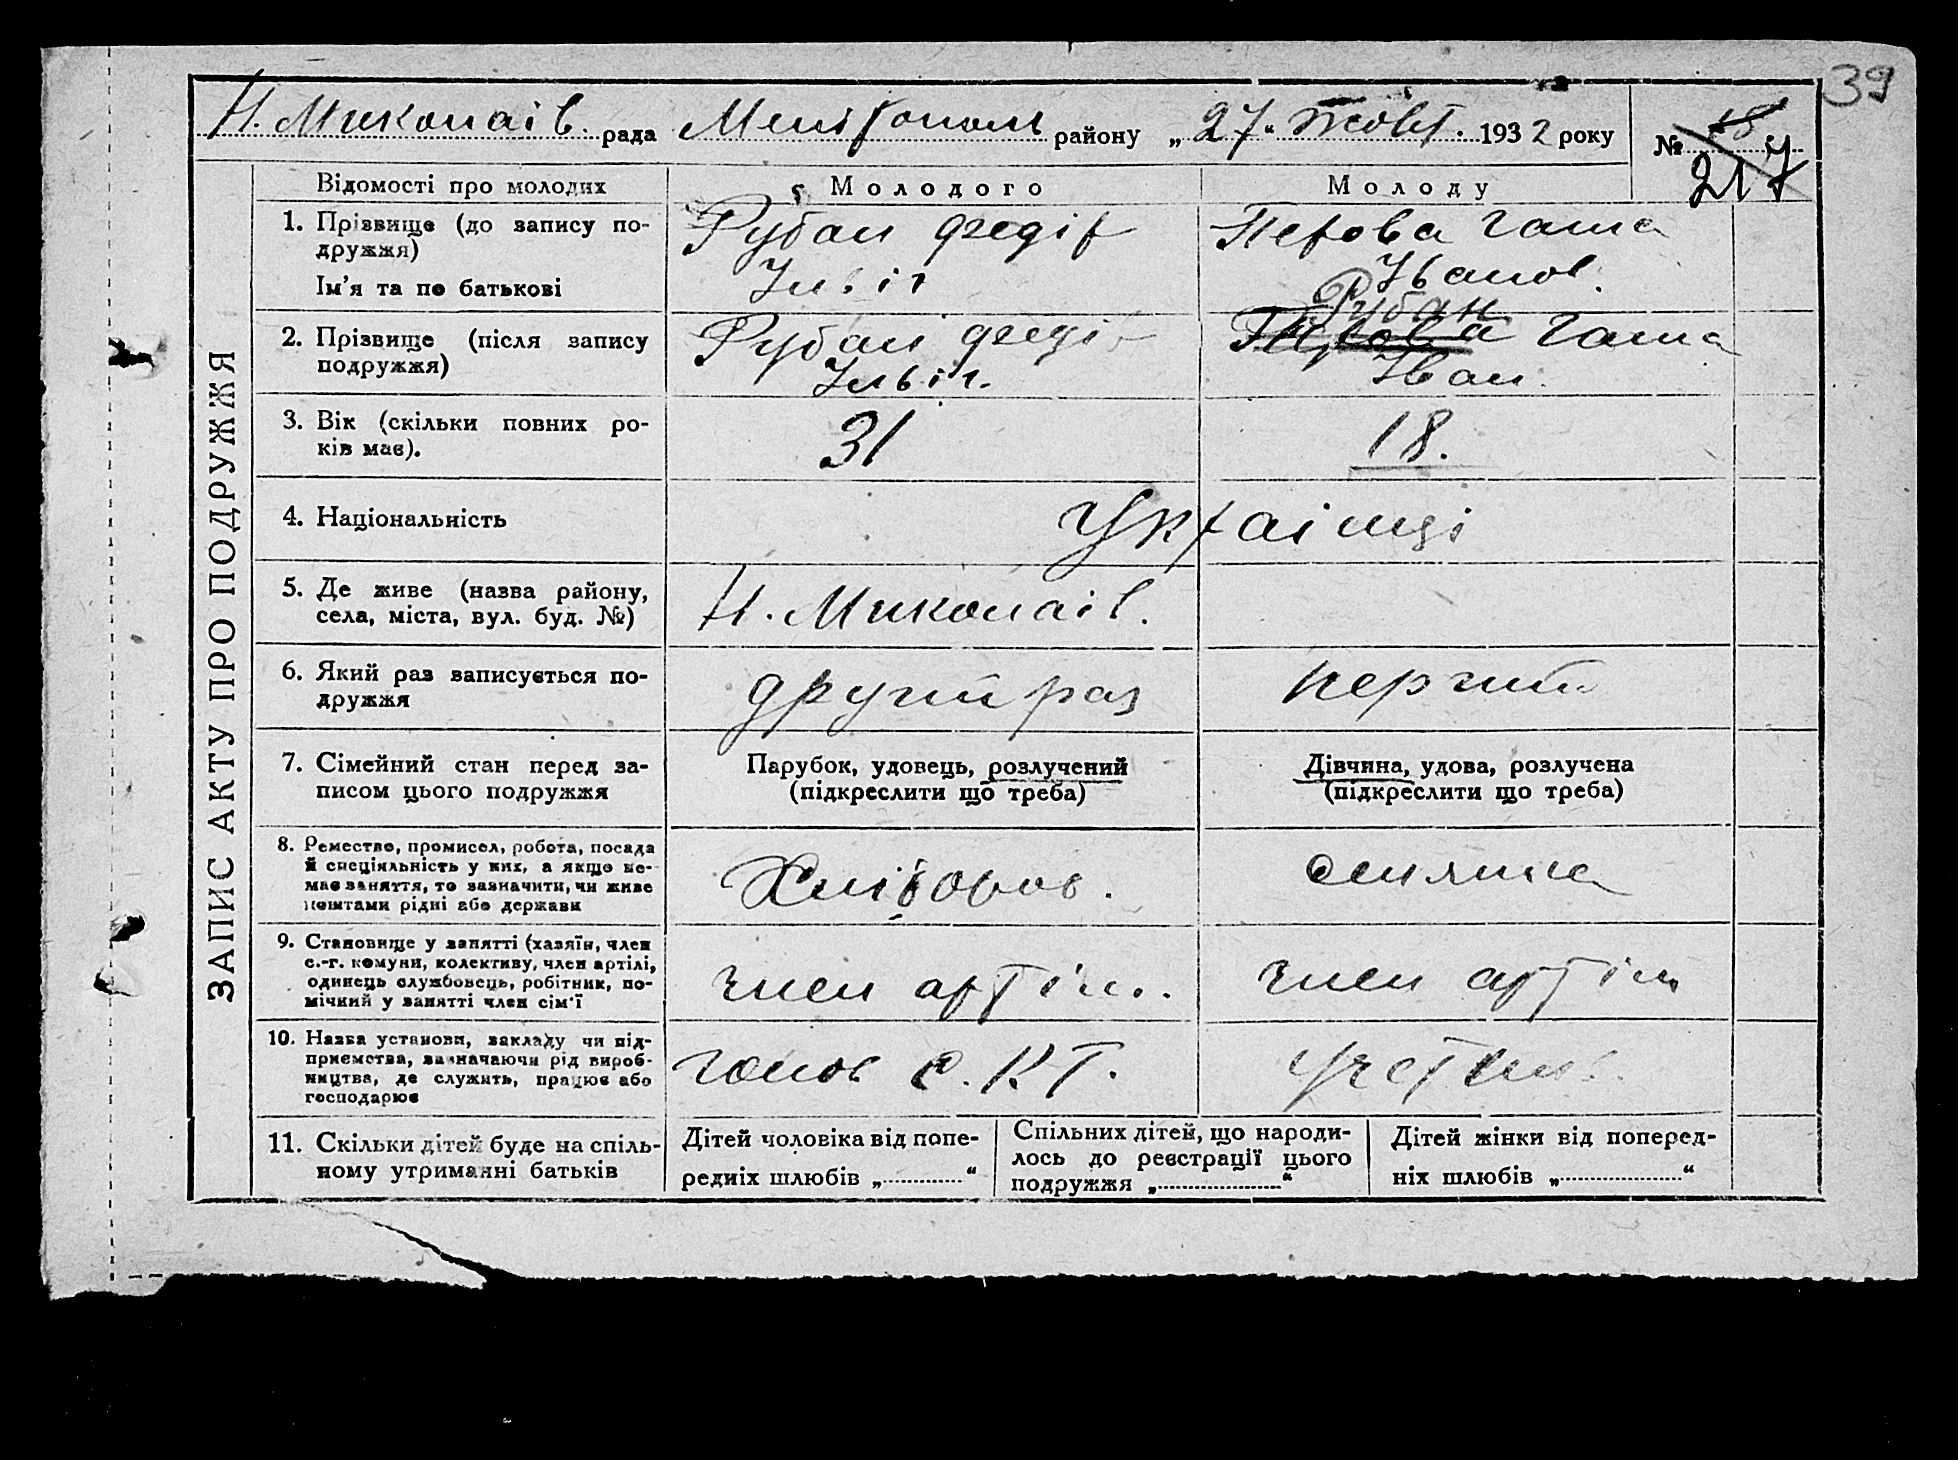 39
Н. Миколаів. рада Меліtополь району „27“ жовт. 1932 року № 217
ЗАПИС АКТУ ПРО ПОДРУЖЖЯ
Відомості про молодих Молодого Молоду
1. Прізвище (до запису по-
дружжя)
Ім'я та по батькові
Рубан Федір
Ільіч
Петрова Гаша
Іванов.
2. Прізвище (після запису
подружжя)
Рубан Федір
Ільіч.
Рубан
Гаша
Іван.
3. Вік (скільки повних ро-
ків має).
31
18.
4. Національність
Українці
5. Де живе (назва району,
села, міста, вул. буд. №)
Н. Миколаів.
6. Який раз записується по-
дружжя
другий раз
перший
7. Сімейний стан перед за-
писом цього подружжя
Парубок, удовець, розлучений
(підкреслити що треба)
Дівчина, удова, розлучена
(підкреслити що треба)
8. Ремество, промисел, робота, посада
й спеціяльність у них, а якщо не-
має заняття, то зазначити, чи живе
коштами рідні або держави
Хлібороб.
селянка
9. Становище у занятті (хазяїн, член
с.-г. комуни, колективу, член артілі,
одинець службовець, робітник, по-
мічний у занятті член сім'ї
член артіл.
член артіл
10. Назва установи, закладу чи під-
приємства, зазначаючи рід вироб-
ництва, де служить, працює або
господарює
голов С.К.Т.
11. Скільки дітей буде на спіль-
ному утриманні батьків
Дітей чоловіка від попе-
редніх шлюбів „ “
Спільних дітей, що народи-
лось до реєстрації цього
подружжя „ “
Дітей жінки від поперед-
ніх шлюбів „ “